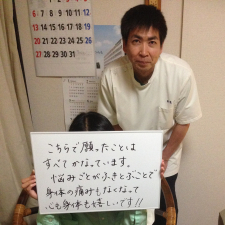 6 7 8 9 10 11
13 14 15 16 17 18
20 21 22 23 24 25
27 28 29 30
こちらで願ったことは
すべてかなっています。
悩みごとがふきとぶことで
身体の痛みもなくなって
心も身体も嬉しいです!!